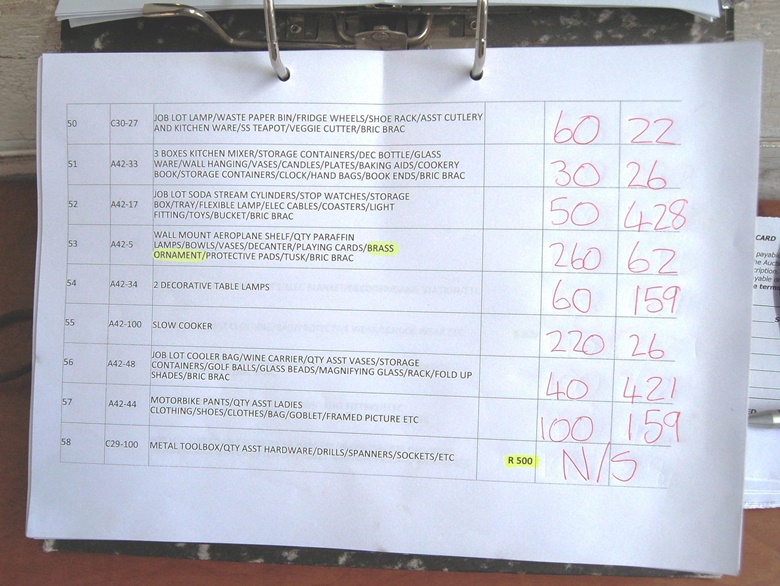 50 C30-27 JOB LOT LAMP/WASTE PAPER BIN/FRIDGE WHEELS/SHOE RACK/ASST CUTLERY
AND KITCHEN WARE/SS TEAPOT/VEGGIE CUTTER/BRIC BRAC 60 22
51 A42-33 3 BOXES KITCHEN MIXER/STORAGE CONTAINERS/DEC BOTTLE/GLASS
WARE/WALL HANGING/VASES/CANDLES/PLATES/BAKING AIDS/COOKERY
BOOK/STORAGE CONTAINERS/CLOCK/HAND BAGS/BOOK ENDS/BRIC BRAC 30 26
52 A42-17 JOB LOT SODA STREAM CYLINDERS/STOP WATCHES/STORAGE
BOX/TRAY/FLEXIBLE LAMP/ELEC CABLES/COASTERS/LIGHT
FITTING/TOYS/BUCKET/BRIC BRAC 50 428
53 A42-5 WALL MOUNT AEROPLANE SHELF/QTY PARAFFIN
LAMPS/BOWLS/VASES/DECANTER/PLAYING CARDS/BRASS
ORNAMENT/PROTECTIVE PADS/TUSK/BRIC BRAC 260 62
54 A42-34 2 DECORATIVE TABLE LAMPS 60 159
55 A42-100 SLOW COOKER 220 26
56 A42-48 JOB LOT COOLER BAG/WINE CARRIER/QTY ASST VASES/STORAGE
CONTAINERS/GOLF BALLS/GLASS BEADS/MAGNIFYING GLASS/RACK/FOLD UP
SHADES/BRIC BRAC 40 421
57 A42-44 MOTORBIKE PANTS/QTY ASST LADIES
CLOTHING/SHOES/CLOTHES/BAG/GOBLET/FRAMED PICTURE ETC 100 159
58 C29-100 METAL TOOLBOX/QTY ASST HARDWARE/DRILLS/SPANNERS/SOCKETS/ETC R 500 N/S
CARD